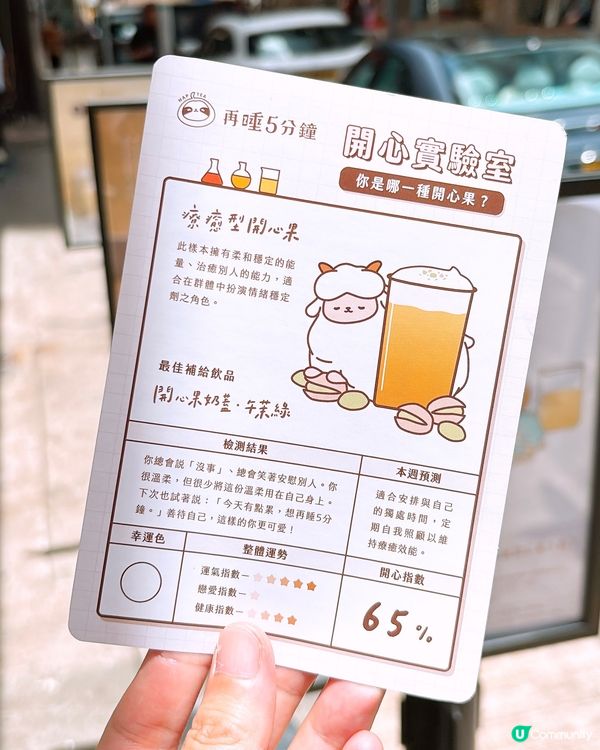 NAP TEA
再睡5分鐘
開心實驗室
你是哪一種開心果？
療癒型開心果
此樣本擁有柔和穩定的能
量、治癒別人的能力，適
合在群體中扮演情緒穩定
劑之角色。
最佳補給飲品
開心果奶蓋·午茉綠
檢測結果
你總會說「沒事」、總會笑著安慰別人。你
很溫柔，但很少將這份溫柔用在自己身上。
下次也試著說：「今天有點累，想再睡5分
鐘。」善待自己，這樣的你更可愛！
本週預測
適合安排與自己
的獨處時間，定
期自我照顧以維
持療癒效能。
幸運色
整體運勢
運氣指數－★★★★★
戀愛指數－★
健康指數－★★★★
開心指數
65%
U Community